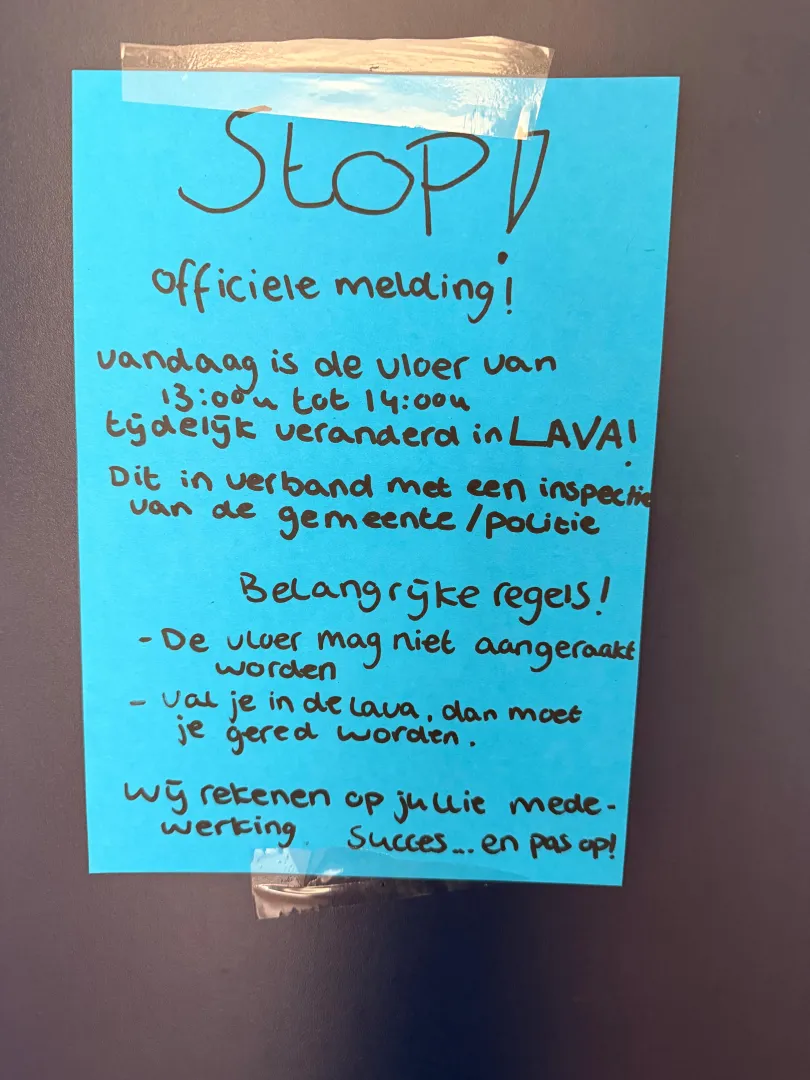 Stop!
officiele melding!
vandaag is de vloer van
13:00u tot 14:00u
tijdelijk veranderd in LAVA!
Dit in verband met een inspectie
van de gemeente/politie
Belangrijke regels!
- De vloer mag niet aangeraakt
worden
- Val je in de lava, dan moet
je gered worden.
Wij rekenen op jullie mede-
werking Succes... en pas op!